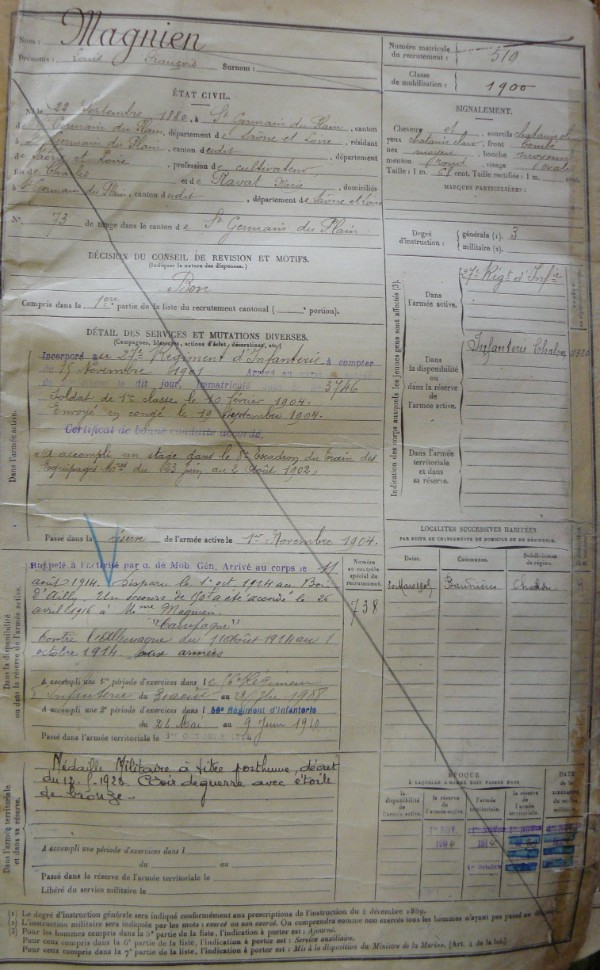 Nom : Magnien
Prénoms : Louis François Surnom :
Numéro matricule du recrutement : 510
Classe de mobilisation : 1900
ÉTAT CIVIL.
Né le 22 Septembre 1880, à St Germain du Plain, canton
de St Germain du Plain, département de Saône et Loire, résidant
à St Germain du Plain, canton dudit, département
de Saône et Loire, profession de cultivateur,
fils de Charles et de Raval Marie, domiciliés
à St Germain du Plain, canton dudit, département de Saône et Loire
N° 73 de tirage dans le canton de St Germain du Plain
SIGNALEMENT.
Cheveux et sourcils châtains
yeux châtain clair, front bombé
nez moyen, bouche moyenne
menton rond, visage ovale
Taille : 1 m. cent. Taille rectifiée : 1 m.
MARQUES PARTICULIÈRES :
Degré d'instruction : générale (1). 3
militaire (2).
DÉCISION DU CONSEIL DE REVISION ET MOTIFS.
(Indiquer la nature des dispenses.)
Bon
Compris dans la 1ère partie de la liste du recrutement cantonal ( portion).
DÉTAIL DES SERVICES ET MUTATIONS DIVERSES.
(Campagnes, blessures, actions d'éclat, décorations, etc.)
Dans l'armée active.
Incorporé au 27e Régiment d'Infanterie à compter
du 15 Novembre 1901 Arrivé au corps
le dit jour, immatriculé 3746
Soldat de 1re classe le 10 février 1904.
Envoyé en congé le 19 septembre 1904.
Certificat de bonne conduite accordé.
A accompli un stage dans le 8e Escadron du train des
Equipages Mres du 23 juin au 2 Août 1902.
Passé dans la réserve de l'armée active le 1er Novembre 1904.
Indication des corps auxquels les jeunes gens sont affectés (3).
Dans l'armée active.
27e Régt d'Infie
Dans la disponibilité ou dans la réserve de l'armée active.
Infanterie Chalon
Dans l'armée territoriale et dans sa réserve.
LOCALITÉS SUCCESSIVES HABITÉES
PAR SUITE DE CHANGEMENTS DE DOMICILE OU DE RÉSIDENCE.
Dates. Communes. Subdivisions de région.
Chalon
Dans la disponibilité ou dans la réserve de l'armée active.
Rappelé à l'activité par o. de Mob. Gén. Arrivé au corps le 11
août 1914. Disparu le 1er oct 1914 au Bois
d'Ailly. Un secours de 150f a été accordé le 26
avril 1916 à Mme Magnien
"Campagne"
Contre l'Allemagne du 11 août 1914 au 1
octobre 1914. aux armées
A accompli une 1re période d'exercices dans le 56e Régiment
d'Infanterie du au 1908
A accompli une 2e période d'exercices dans le 56e Régiment d'Infanterie
du 24 Mai au 9 Juin 1910
Passé dans l'armée territoriale le 1er Octobre 1914
Numéro au contrôle spécial du recrutement.
738
Dans l'armée territoriale et dans sa réserve.
Médaille Militaire à titre posthume, décret
du 1928. Croix de guerre avec étoile
de bronze.
A accompli une période d'exercices dans l
du au
Passé dans la réserve de l'armée territoriale le
Libéré du service militaire le
ÉPOQUE
À LAQUELLE L'HOMME DOIT PASSER DANS
la disponibilité de l'armée active. la réserve de l'armée active. l'armée territoriale la réserve de l'armée territoriale.
DATE de la libération du service militaire.
(1) Le degré d'instruction générale sera indiqué conformément aux prescriptions de l'instruction du 2 décembre 1889.
(2) L'instruction militaire sera indiquée par les mots : exercé ou non exercé. On comptera comme non exercés tous les hommes n'ayant pas passé
(3) Pour les hommes compris dans la 5e partie de la liste, l'indication à porter est : Ajourné.
Pour ceux compris dans la 6e partie de la liste, l'indication à porter est : Service auxiliaire.
Pour ceux compris dans la 7e partie de la liste, l'indication à porter est : Mis à la disposition du Ministre de la Marine. (Art. 4 de la loi.)